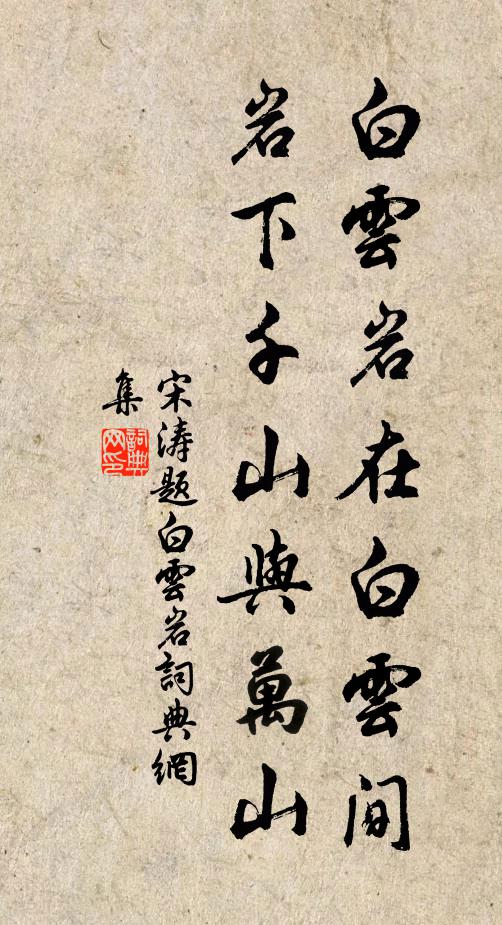 白雲岩在白雲間
岩下千山與萬山
宋濤題白雲岩詞典網
集
詞典
网印